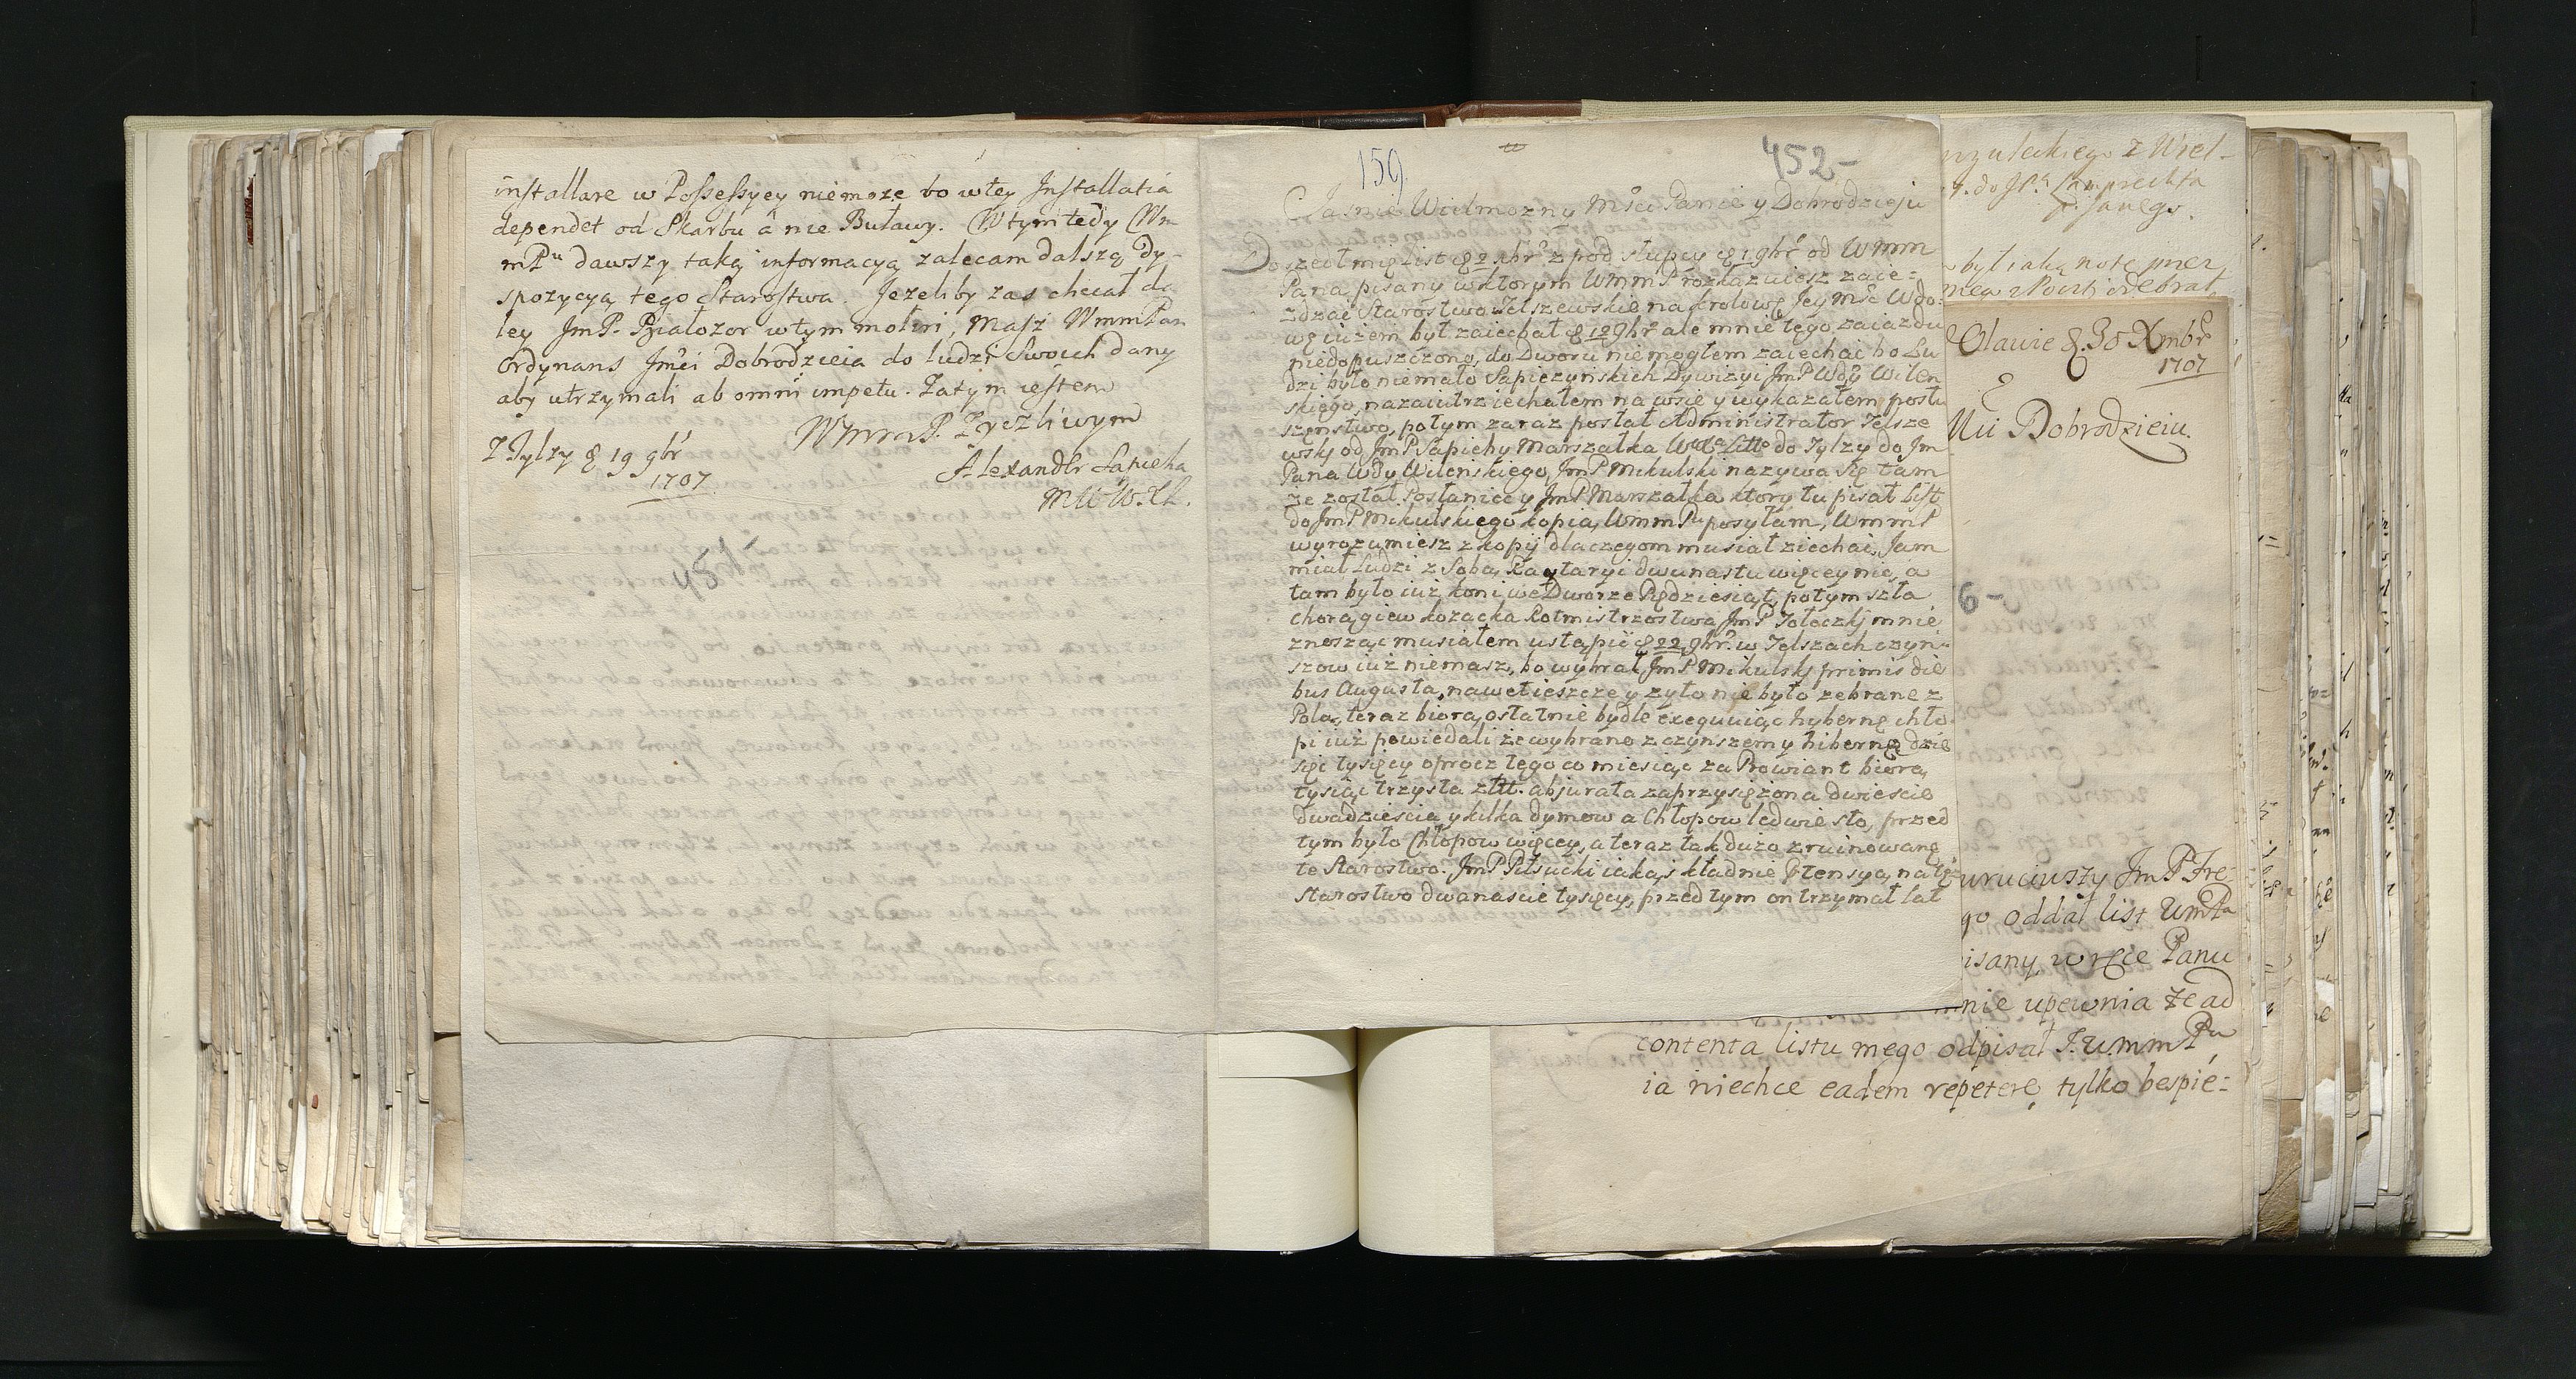 installare w Possessyey niemoże bo w tey Installatia
dependet od Skarbu a nie Buławy. W tym tedy Wm
mPu dawszy taką informacyą zalecam dalszą dy-
spozycyą tego Starostwa. Jeżeliby zas chciał da
ley JmP. Białozor w tym moliri, masz WmmPan
Ordynans Jmści Dobrodzieia do ludzi Swoich dany
aby utrzymali ab omni impetu. Zatym iestem
WmmP. Zyczliwym
Z Tylzy d 19 9br
1707
Alexandr Sapieha
MWWXL.
451-
159.
452-
Jasnie Wielmozny Mści Panie y Dobrodzieju
Doszedł mię list d 2 Xbr z pod Słupcy d 1 9br od Wmm
Pana pisany w ktorym WmmP rozkazuiesz zaie-
zdzac Starostwo Telszewskie na krolowę Jey Mśc Wdo-
wę iużem był zaiechał d 12 9br ale mnie tego zaiazdu
niedopuszczono, do Dworu niemogłem zaiechac bo Lu
dzi było niemało Sapiezyńskich Dywizyi JmP Wdy Wilen
skiego, nazaiutrz iechałem na wsie y wykazałem posłu
szęnstwo, potym zaraz posłał Administrator Telsze
wskj od JmP Sapiehy Marszałka WXLitto do Tylzy do Jm
Pana Wdy Wilenskiego, JmP Mikulski nazywa się tam
że został Posłaniec y JmP Marszałka ktory tu pisał list
do JmP Mikulskiego kopią WmmPu posyłam, WmmP
wyrozumiesz z kopij dlaczegom musiał ziechać, Jam
miał Ludzi z Sobą dwunastu więcey nie, a
tam było iuż koni we Dworze Pędziesiąt, potym szła
chorągiew kozacka Rotmistrzostwa JmP mnie
znosząc musiałem ustąpić d 22 9br. w Telszach czyn-
szow iuż niemasz, bo wybrał JmP Mikulskj primis die
bus Augusta, nawet ieszcze y zyto nie było zebrane z
Pola, teraz biorą ostatnie bydle exequuiąc hybernę chło
pi iuż powiedali że wybrano z czynszem y hiberną dzie
sięc tysięcy oprocz tego co miesiąc za Prowiant biorą
tysiąc trzysta złtt. abjurata zaprzysięzona dwiescie
dwadziescia y kilka dymow a Chłopow ledwie sto, przed
tym było Chłopow więcey, a teraz tak dużo zruinowane
te Starostwo. JmP Piłsucki iakąs kładnie Ptensyą na to
Starostwo dwanascie tysięcy, przed tym on trzymał lat
z Wiel-
do JPa Lamprechta
pisanego.
był iaką notę
Olawie d. 30 Xmbr
1707
Mci Dobrodzieiu.
6-
uruciwszy JmP Fre-
go oddał list WmPa
isany, w ręce Panu
mnie upewnia że ad
contenta listu mego odpisał J.W.mmPu
ia niechce eadem repetere, tylko bespie-